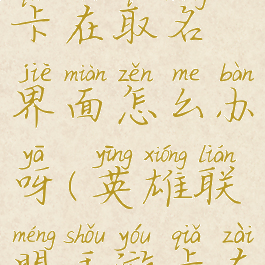 卡在取名
jiè miàn zěn me bàn
界面怎么办
yā yīng xióng lián
呀(英雄联
méng shǒu yóu qiǎ zài
盟手游卡在